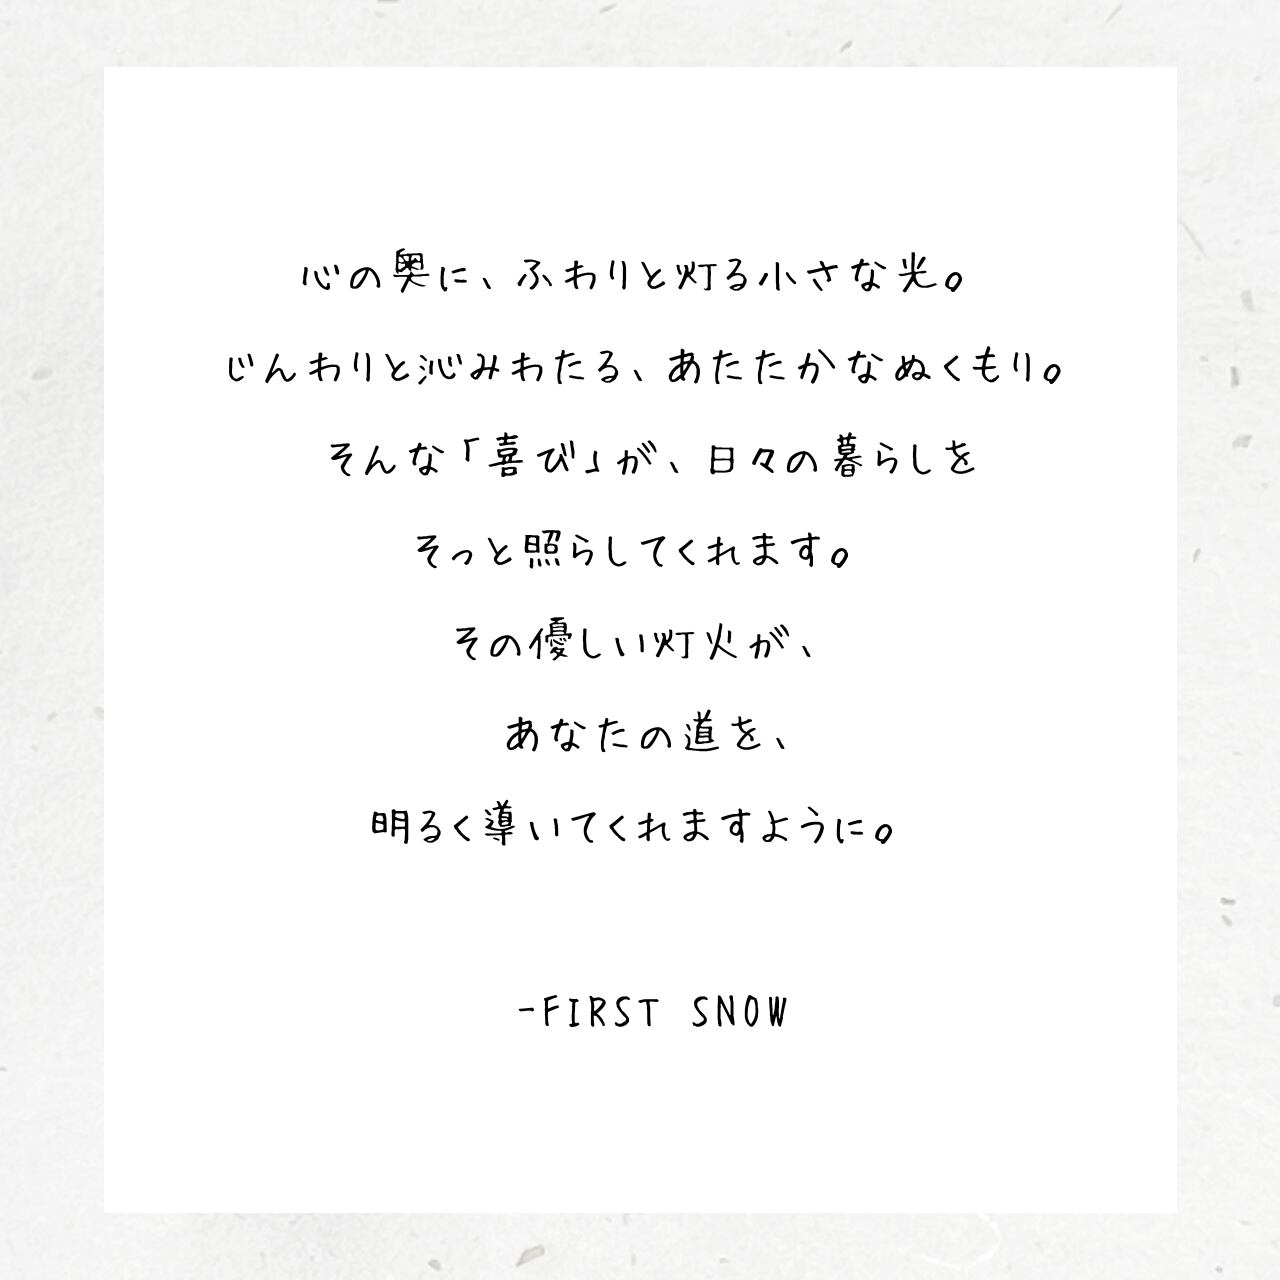 心の奥に、ふわりと灯る小さな光。
じんわりと沁みわたる、あたたかなぬくもり。
そんな「喜び」が、日々の暮らしを
そっと照らしてくれます。
その優しい灯火が、
あなたの道を、
明るく導いてくれますように。
-FIRST SNOW